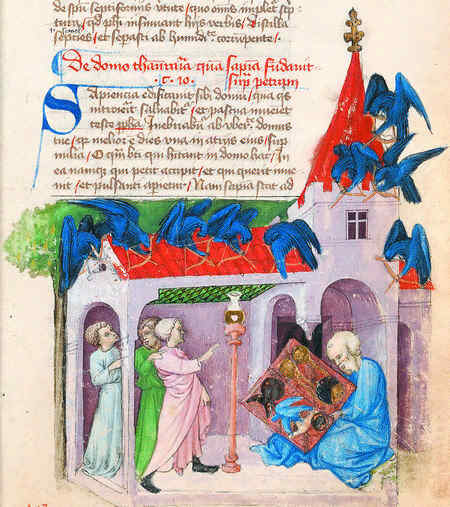 de spu septiformis virtute quo omnis impletur scrip
tura, qd phi insinuant hijs verbis, Distilla
septies, et sepasti ab humidite corrumpente.
De domo thauraria qua sapia fudavit
.c. 10. supra petram
Sapiencia edificavit sibi domu, qua qs
introierit salvabitr, et pascua inveniet
teste ppha, Inebriabunt ab ubertate domus
tue, qr melior e dies una in atrijs eius, sup
milia, O qm bti qui hitant in domo hac, In
ea namque qui petit accipit, et qui querit inve
nit, et pulsanti aperietur, Nam sapia stat ad